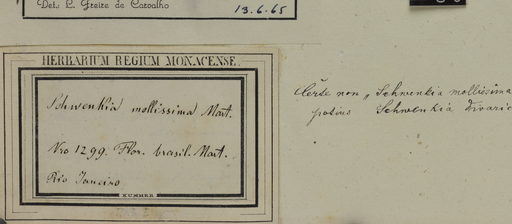 Det. L. Freire de Carvalho
13.6.65
HERBARIUM REGIUM MONACENSE.
Schwenkia mollissima Mart.
Nro 1299. Flor. brasil. Mart.
Rio Janeiro
KUMMER
Certe non „ Schwenkia mollissima
potius Schwenkia divaric